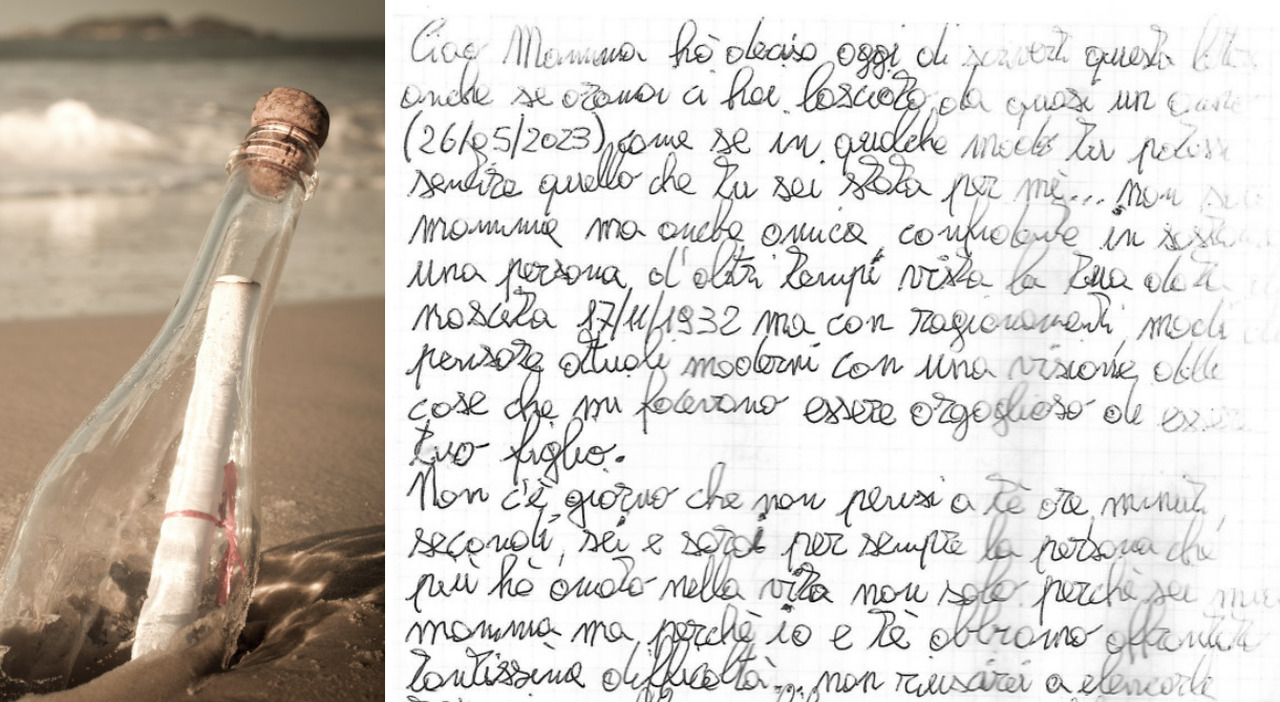 Ciao Mamma hò deciso oggi di scriverti questa
anche se oramai ci hai lasciato da quasi un
(26/05/2023) come se in qualche modo tu potessi
sentire quello che tu sei stata per mè... non
mamma ma anche amica, confidente in
una persona d'altri tempi vista la tua
nascita 17/11/1932 ma con ragionamenti, modi
pensare attuali moderni con una visione delle
cose che mi facevano essere orgoglioso di essere
tuo figlio.
Non c'è giorno che non pensi a tè ore, minuti,
secondi, sei e sarai per sempre la persona che
più hò amato nella vita non solo perchè sei mia
mamma ma perchè io e tè abbiamo affrontato
tantissime difficoltà... non riuscirei a elencarle